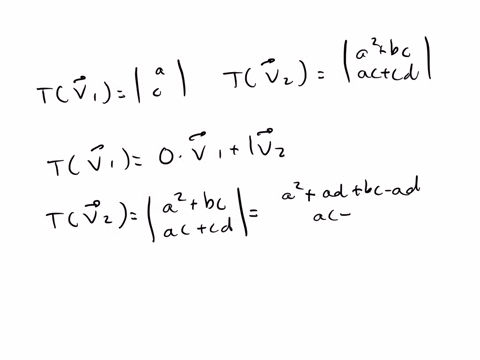 T(v⃗₁) = |a c|   T(v⃗₂) = |a²+bc ac+cd|
T(v⃗₁) = 0·v⃗₁ + 1v⃗₂
T(v⃗₂) = |a²+bc ac+cd| = a²+ad+bc-ad ac-